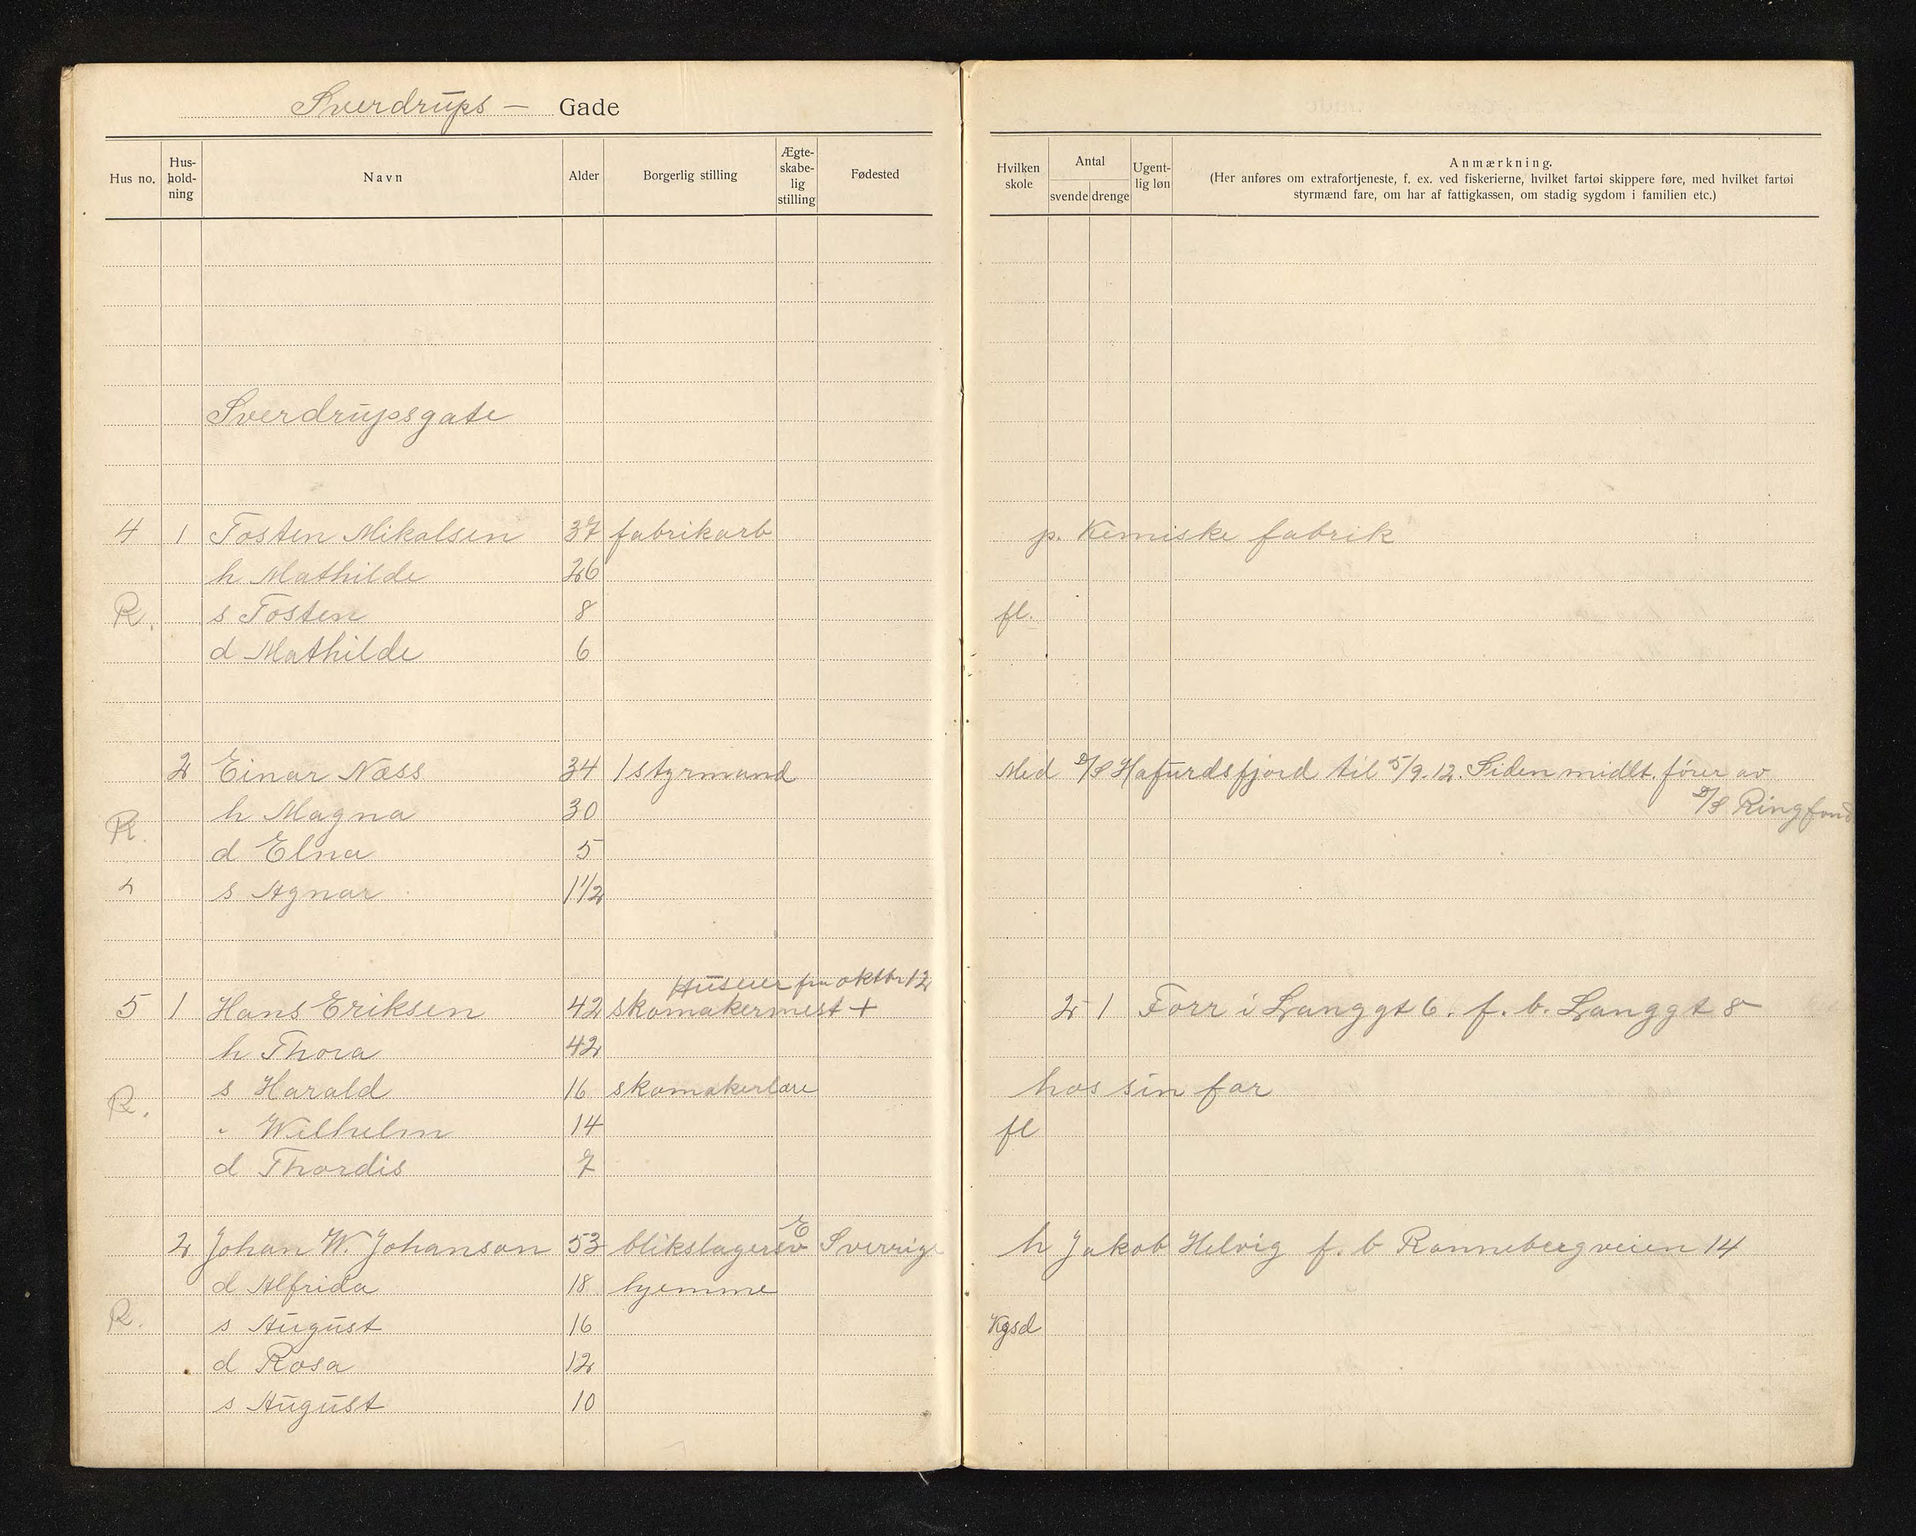 Sverdrups – Gade
Hus no. Hus-holdning Navn Alder Borgerlig stilling Ægte-skabe-lig stilling Fødested Hvilken skole Antal svende drenge Ugent-lig løn Anmærkning.
(Her anføres om extrafortjeneste, f. ex. ved fiskerierne, hvilket fartøi skippere føre, med hvilket fartøi
styrmænd fare, om har af fattigkassen, om stadig sygdom i familien etc.)
Sverdrupsgate
4 1 Tosten Mikalsen 37 fabrikarb p. Kemiske fabrik
h Mathilde 26
R. s Tosten 8 fl.
d Mathilde 6
2 Einar Næss 34 1 styrmand Med D/S Hafursfjord til 5/9.12. Siden midlt. fører av
D/S Ringfond
h Magna 30
R. d Elna 5
2 s Agnar 1 1/2
Huseier fra oktbr 12
5 1 Hans Eriksen 42 skomakermest + 2 1 Forr i Langgt 6. f. b. Langgt 8
h Thora 42
R. s Harald 16 skomakerlære hos sin far
" Wilhelm 14 fl
d Thordis 7
2 Johan W. Johanson 53 blikslagersv E Sverrige h Jakob Helvig f. b Rannebergveien 14
d Alfrida 18 hjemme
R. s August 16 Kgsd
d Rosa 12
s August 10